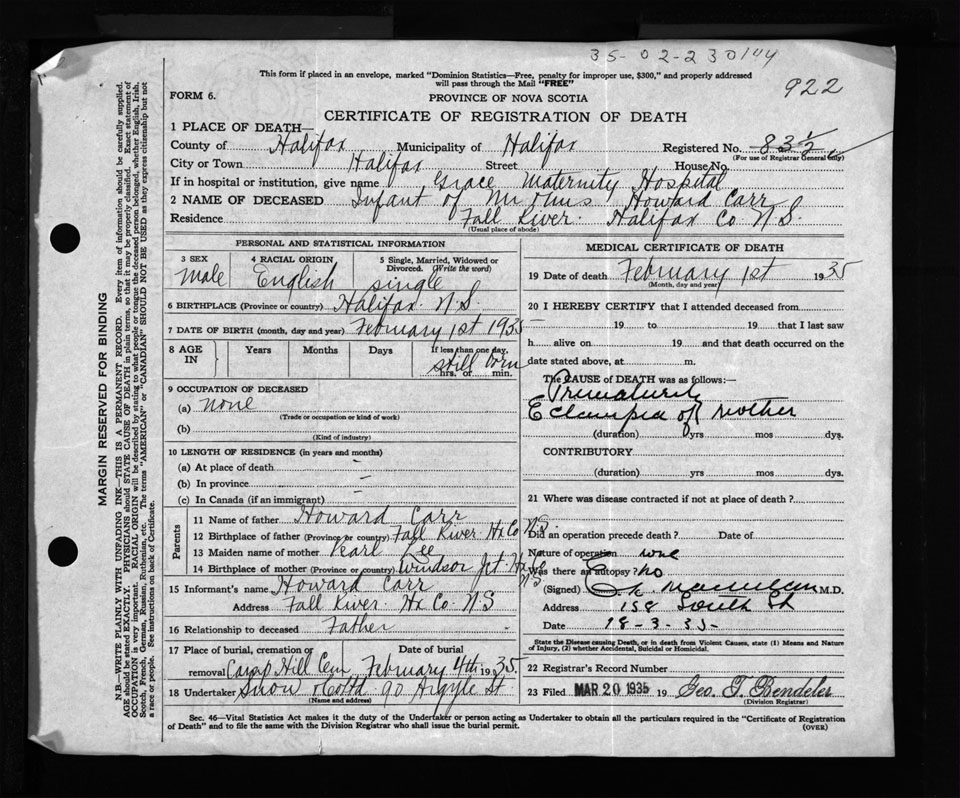 35-02-230144
922
This form if placed in an envelope, marked "Dominion Statistics—Free, penalty for improper use, $300," and properly addressed
will pass through the Mail "FREE"
FORM 6.
PROVINCE OF NOVA SCOTIA
CERTIFICATE OF REGISTRATION OF DEATH
1 PLACE OF DEATH—
County of Halifax Municipality of Halifax Registered No. 83½
(For use of Registrar General only)
City or Town Halifax Street House No.
If in hospital or institution, give name Grace Maternity Hospital
2 NAME OF DECEASED Infant of Mr & Mrs Howard Carr
Residence Fall River. Halifax Co N.S.
(Usual place of abode)
PERSONAL AND STATISTICAL INFORMATION
3 SEX 4 RACIAL ORIGIN 5 Single, Married, Widowed or
Divorced. (Write the word)
male English single
6 BIRTHPLACE (Province or country) Halifax. N.S.
7 DATE OF BIRTH (month, day and year) February 1st 1935
8 AGE
IN
Years Months Days If less than one day,
still born
hrs. or min.
9 OCCUPATION OF DECEASED
(a) none
(Trade or occupation or kind of work)
(b)
(Kind of industry)
10 LENGTH OF RESIDENCE (in years and months)
(a) At place of death —
(b) In province —
(c) In Canada (if an immigrant) —
Parents
11 Name of father Howard Carr
12 Birthplace of father (Province or country) Fall River Hx Co N.S.
13 Maiden name of mother Pearl Lee
14 Birthplace of mother (Province or country) Windsor Jct. Hx Co
N S
15 Informant's name Howard Carr
Address Fall River. Hx Co. N S
16 Relationship to deceased Father
17 Place of burial, cremation or Date of burial
removal Camp Hill Cem February 4th 1935
18 Undertaker Snow & Co Ltd 90 Argyle St
(Name and address)
MEDICAL CERTIFICATE OF DEATH
19 Date of death February 1st 1935
(Month, day and year)
20 I HEREBY CERTIFY that I attended deceased from
— 19 to 19 that I last saw
h alive on 19 and that death occurred on the
date stated above, at m.
The CAUSE of DEATH was as follows:—
Prematurity
Eclampsia of mother
(duration) yrs mos dys.
CONTRIBUTORY
(duration) yrs mos dys.
21 Where was disease contracted if not at place of death ?
Did an operation precede death ? Date of
Nature of operation none
Was there an autopsy ? no
(Signed) M.D.
Address 158 South St
Date 18-3-35-
State the Disease causing Death, or in death from Violent Causes, state (1) Means and Nature
of Injury, (2) whether Accidental, Suicidal or Homicidal.
22 Registrar's Record Number
23 Filed MAR 20 1935 19 Geo. T. Bendeler
(Division Registrar)
Sec. 46—Vital Statistics Act makes it the duty of the Undertaker or person acting as Undertaker to obtain all the particulars required in the "Certificate of Registration
of Death" and to file the same with the Division Registrar who shall issue the burial permit. (OVER)
MARGIN RESERVED FOR BINDING
N.B.—WRITE PLAINLY WITH UNFADING INK—THIS IS A PERMANENT RECORD. Every item of information should be carefully supplied.
AGE should be stated EXACTLY. PHYSICIANS should STATE CAUSE OF DEATH in plain terms, so that it may be properly classified. Exact statement of
OCCUPATION is very important. RACIAL ORIGIN will be described by stating to what people or tongue the deceased person belonged, whether English, Irish,
Scotch, French, German, Russian, Ruthenian, etc. The terms "AMERICAN" or "CANADIAN" SHOULD NOT BE USED as they express citizenship but not
a race or people. See instructions on back of Certificate.